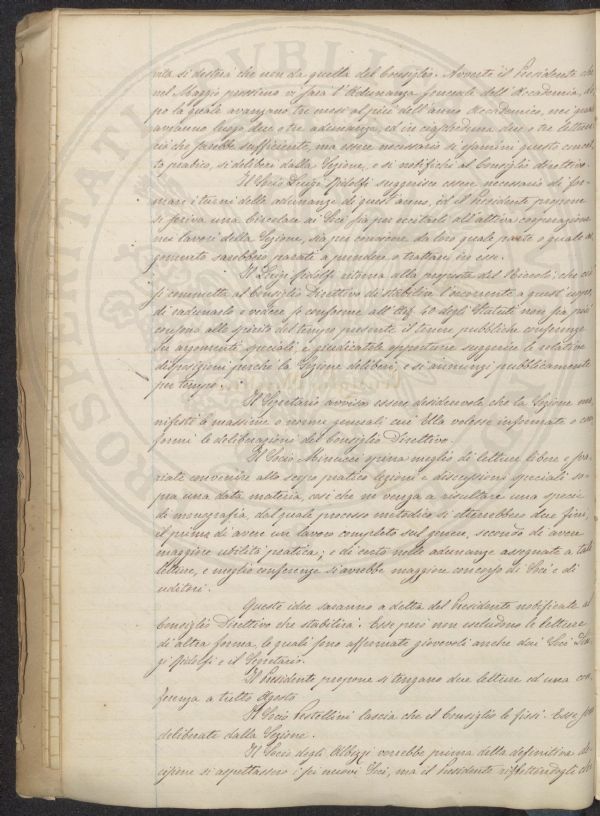 vita si desterà che non da quella del Consiglio. Avverte il Presidente che
nel Maggio prossimo vi sarà l'Adunanza generale dell'Accademia, do-
po la quale avanzano tre mesi al più dell'anno Accademico, nei quali
avranno luogo due o tre adunanze, ed in ciascheduna due o tre lettu-
re che sarebbe sufficiente, ma essere necessario si esamini questo concet-
to pratico, si deliberi dalla Sezione, e si notifichi al Consiglio direttivo.
Il Socio Luigi Ridolfi suggerisce essere necessario di for-
mare i turni delle adunanze di quest'anno, ed il Presidente propone
si scriva una Circolare ai Soci sia per eccitarli all'attiva cooperazione
nei lavori della Sezione, sia per conoscere da loro quale parte o quale ar-
gomento sarebbero parati a prendere o trattare in esse.
Il Luigi Ridolfi ritorna alla proposta del Niccoli: che cioè
si commetta al Consiglio Direttivo di stabilire l'occorrente a quest'uopo,
di radunarlo e vedere se conforme all'Art. 60 degli Statuti non sia più
consono allo spirito del tempo presente il tenere pubbliche conferenze
su argomenti speciali, e giudicatolo opportuno suggerire le relative
disposizioni perchè la Sezione deliberi, e si annunzi pubblicamente
per tempo.
Il Segretario avvisa essere desiderevole che la Sezione ma-
nifesti le massime o norme generali cui Ella volesse informate o con-
formi le deliberazioni del Consiglio Direttivo.
Il Socio Minucci opina meglio di letture libere e sva-
riate convenire allo scopo pratico lezioni e discussioni speciali so-
pra una data materia, così che ne venga a risultare una specie
di monografia, dal quale processo metodico si otterrebbero due fini,
il primo di avere un lavoro completo sul genere, secondo di avere
maggiore utilità pratica; e di certo nelle adunanze assegnate a tali
letture, o meglio conferenze si avrebbe maggiore concorso di Soci e di
uditori.
Queste idee saranno a detta del Presidente notificate al
Consiglio Direttivo che stabilirà. Esse però non escludono le letture
di altra forma, le quali sono affermate giovevoli anche dai Soci Lui-
gi Ridolfi e il Segretario.
Il Presidente propone si tengano due letture ed una con-
ferenza a tutto Agosto.
Il Socio Pestellini lascia che il Consiglio le fissi. Esse
deliberate dalla Sezione.
Il Socio degli Albizzi vorrebbe prima della definitiva de-
cisione si aspettassero i sei nuovi Soci, ma il Presidente riflettendogli che